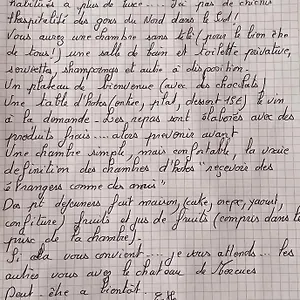 habitués a plus de luxe.... J'ai pas de chichis
Hospitalité des gens du Nord dans le Sud!
Vous aurez une chambre sans télé (pour le bien être
de tous!), une salle de bain et toilette privative,
serviettes, shampoings et autre à disposition.
Un plateau de bienvenue (avec des chocolats)
Une table d'hôtes (entrée, plat, dessert 15€), le vin
à la demande. Les repas sont élaborés avec des
produits frais.... alors prévenir avant
Une chambre simple, mais confortable, la vraie
définition des chambres d'hôtes "recevoir des
étrangers comme des amis"
Des pit déjeuners fait maison, (cake, crepe, yaourt,
confiture) fruits et jus de fruits (compris dans le
prix de la chambre).
Si cela vous convient.... je vous attends... les
autres vous avez le chateau de Mercues
Peut être a bientôt...